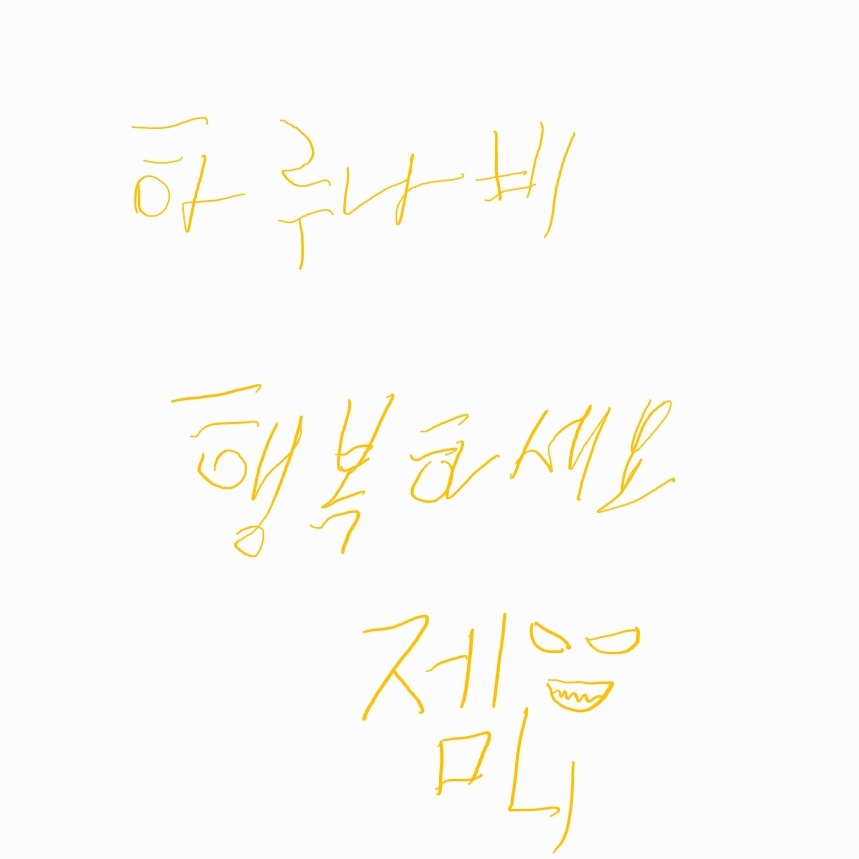 하루나비
행복하세요
젬니